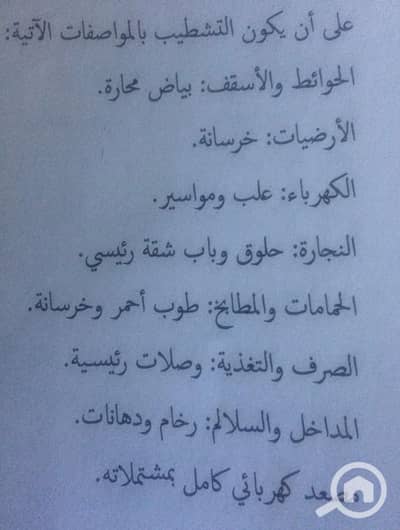 على أن يكون التشطيب بالمواصفات الآتية:
الحوائط والأسقف: بياض محارة.
الأرضيات: خرسانة.
الكهرباء: علب ومواسير.
النجارة: حلوق وباب شقة رئيسي.
الحمامات والمطابخ: طوب أحمر وخرسانة.
الصرف والتغذية: وصلات رئيسية.
المداخل والسلالم: رخام ودهانات.
مصعد كهربائي كامل بمشتملاته.